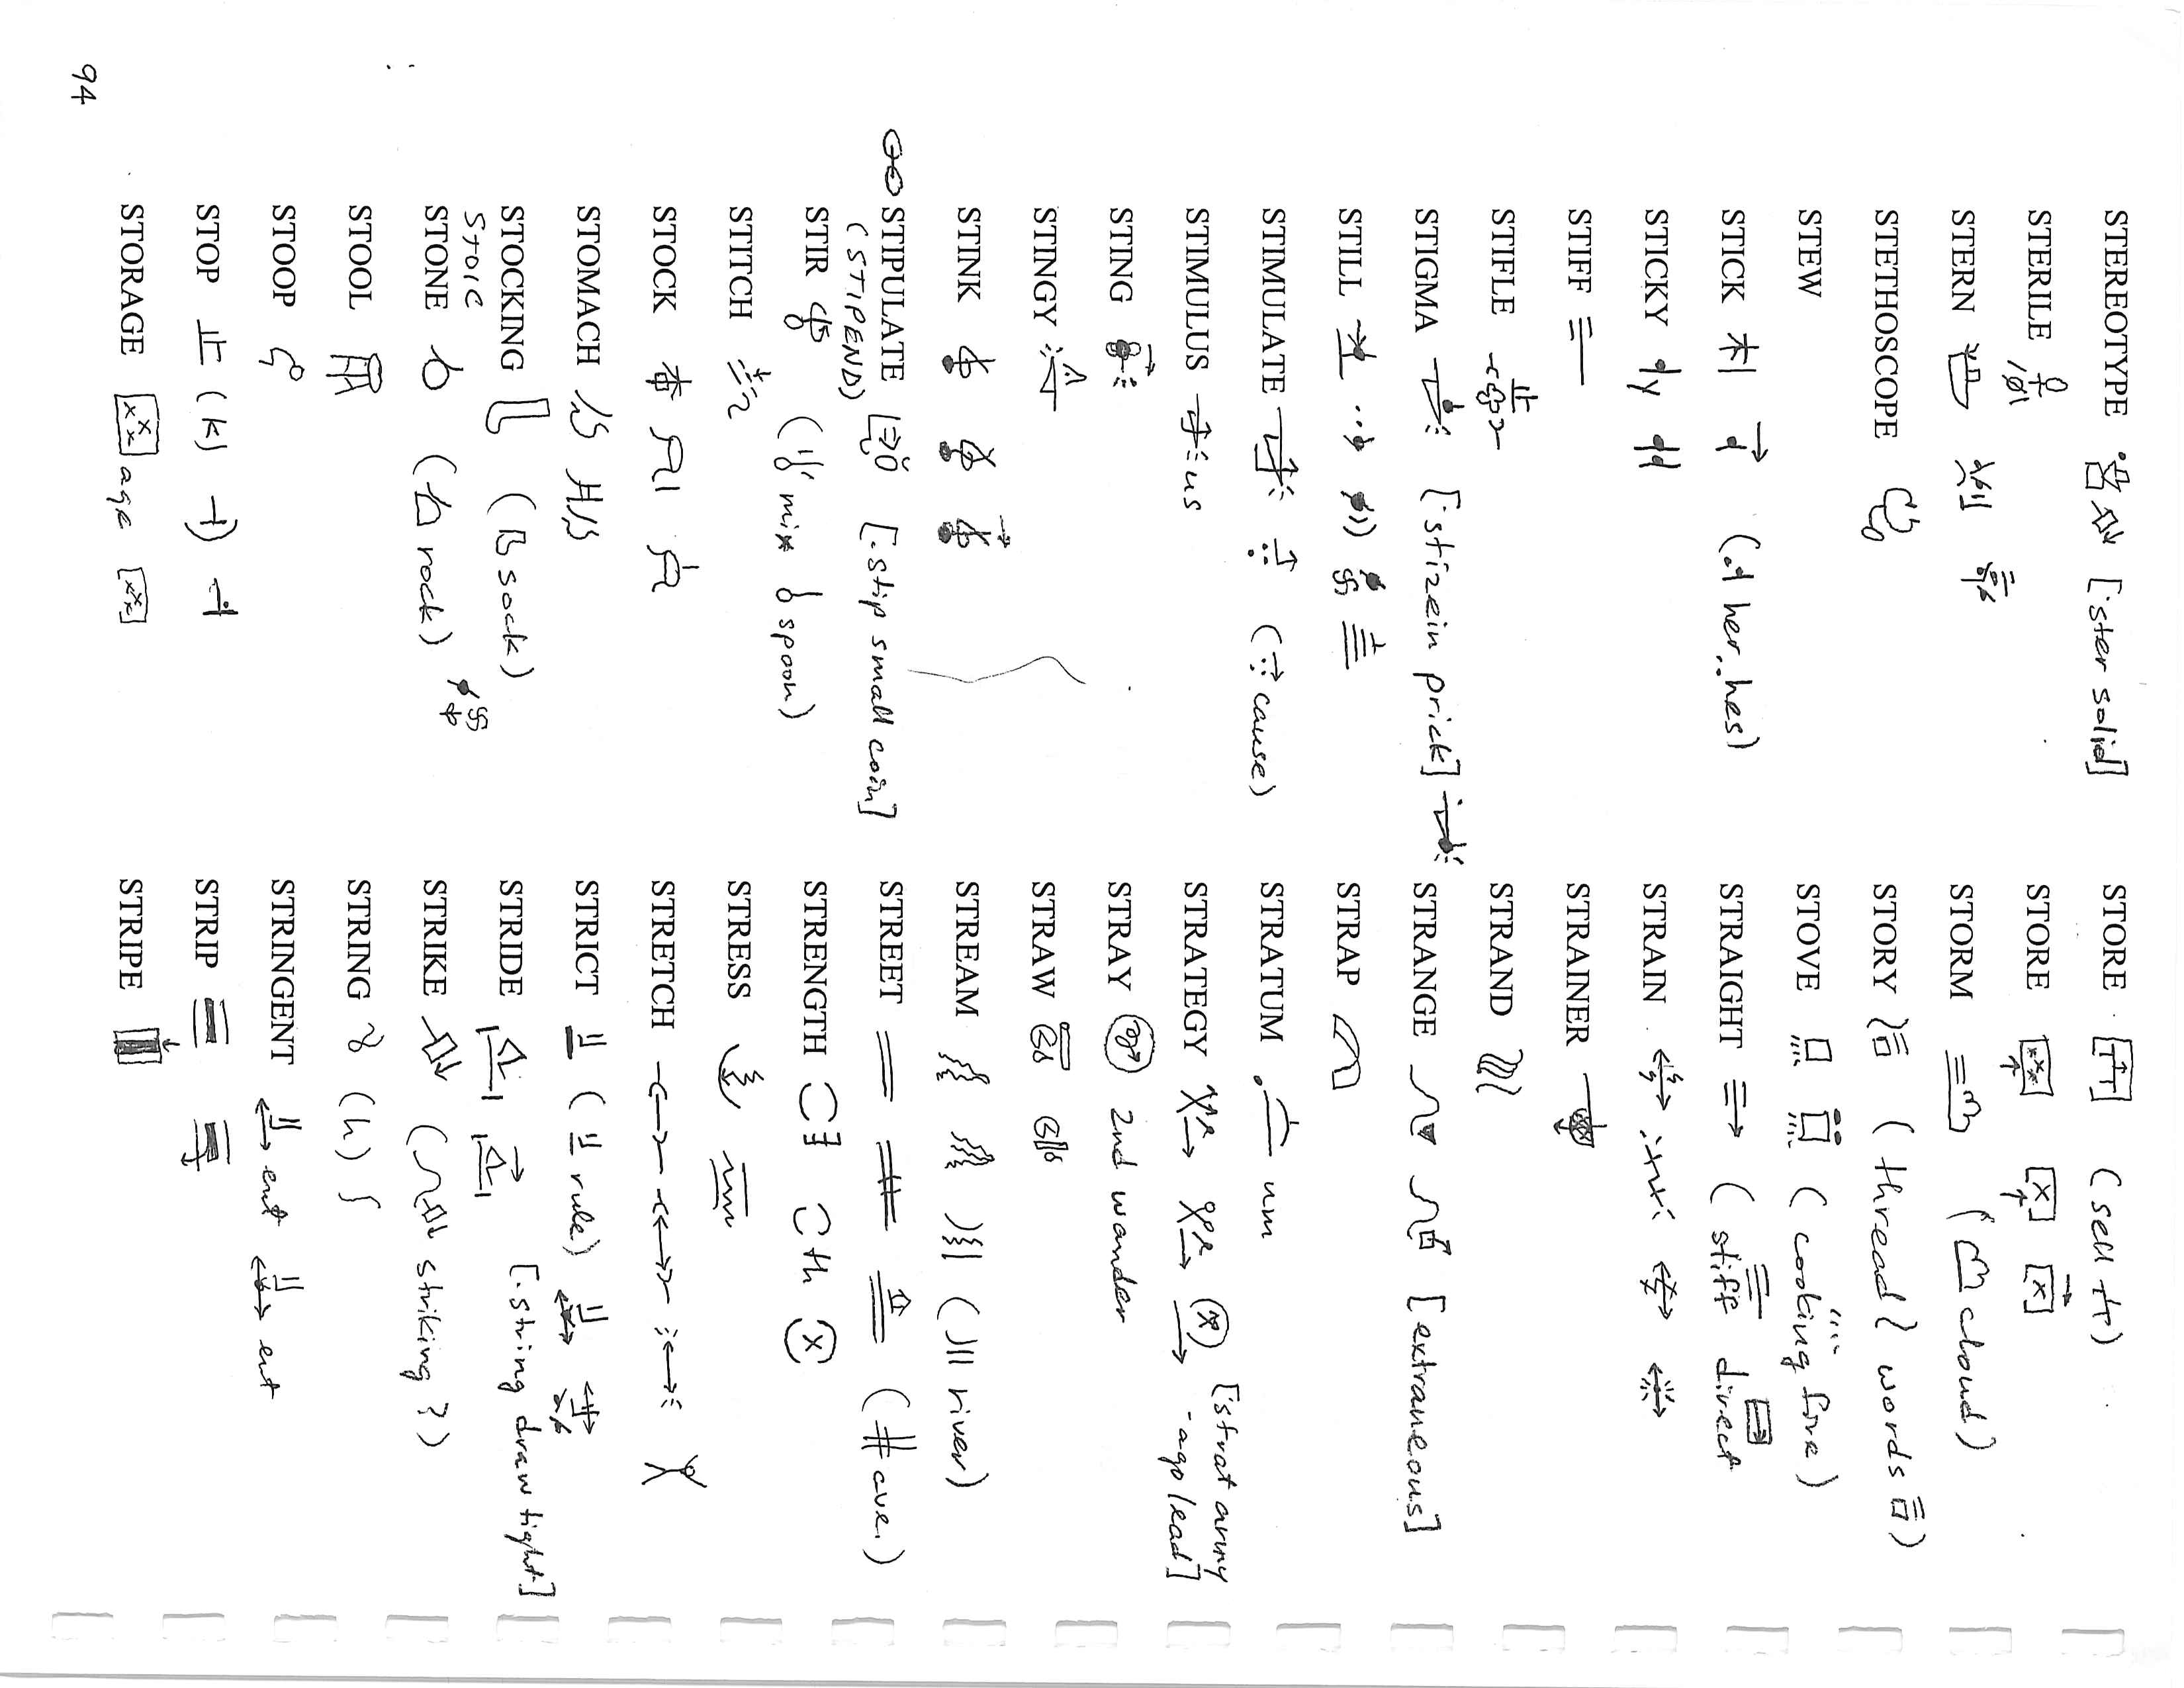 STEREOTYPE [·ster solid]
STERILE
STERN
STETHOSCOPE
STEW
STICK (her. hes)
STICKY
STIFF
STIFLE
STIGMA [·stizein prick]
STILL
STIMULATE (cause)
STIMULUS us
STING
STINGY
STINK
STIPULATE [·stip small coin]
(STIPEND)
STIR (mix spoon)
STITCH
STOCK
STOMACH
STOCKING (sock)
STOIC
STONE (rock)
STOOL
STOOP
STOP (k)
STORAGE age
STORE (sell)
STORE
STORM (cloud)
STORY (thread words)
STOVE (cooking fire)
STRAIGHT (stiff direct
STRAIN
STRAINER
STRAND
STRANGE [extraneous]
STRAP
STRATUM um
STRATEGY [·strat army
-ago lead]
STRAY 2nd wander
STRAW
STREAM (river)
STREET (# ave.)
STRENGTH th
STRESS
STRETCH
STRICT (rule)
STRIDE [·string draw tight·]
STRIKE (striking?)
STRING (h)
STRINGENT ent ent
STRIP
STRIPE
94